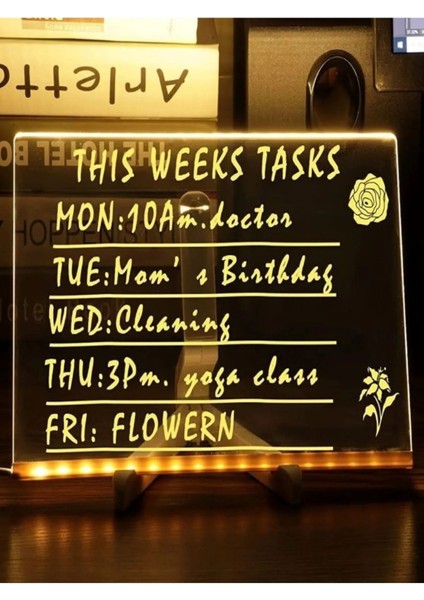 Arletto
THE HOTEL BO
HOPPEN STY
THIS WEEKS TASKS
MON:10Am.doctor
TUE:Mom' s Birthdag
WED:Cleaning
THU:3Pm. yoga class
FRI: FLOWERN